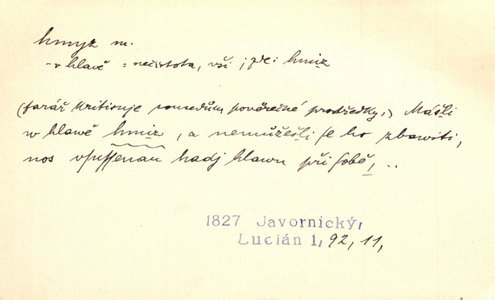 hmyz m.
- v hlavě = nečistota, vši ; ps: hmiz
(farář kritisuje sousedům pověrečné prostředky:) Mášli
w hlawě hmiz, a nemůžešli se ho zbawiti,
nos vſuſſenau hadj hlawu při ſobě, ..
1827 Javornický,
Lucián 1, 92, 11,